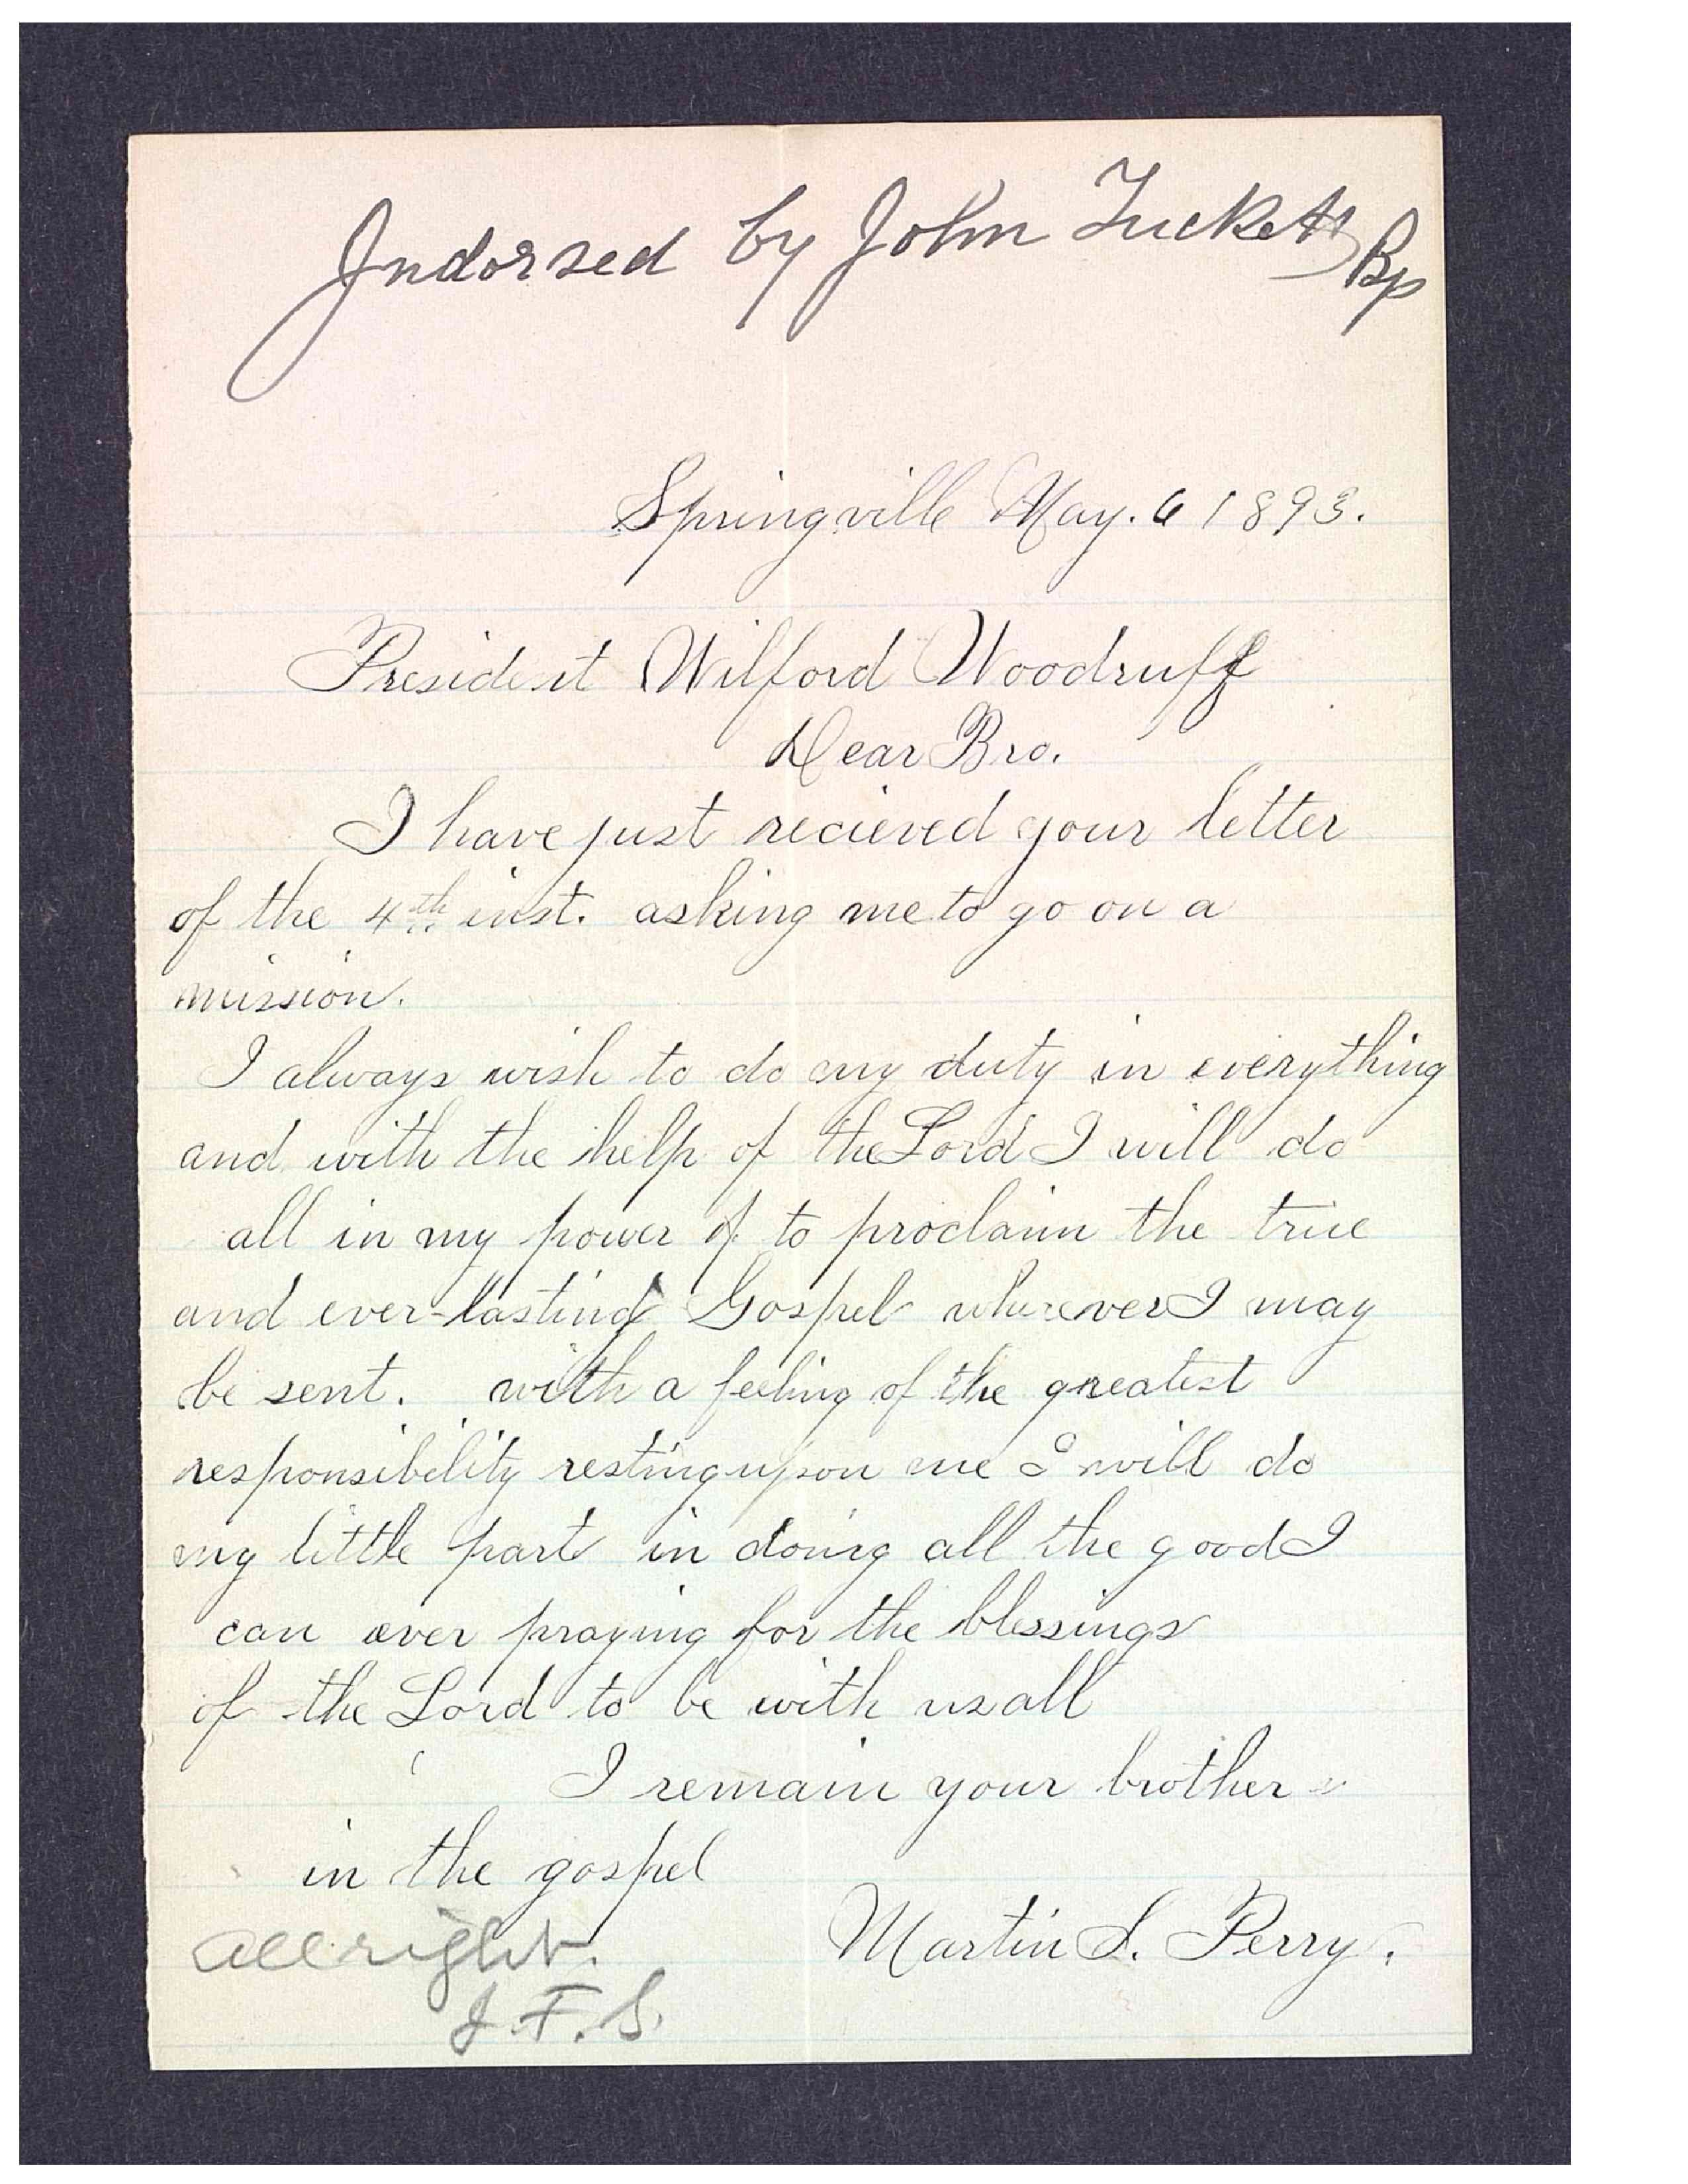 Indorsed by John Tuckett Bp
Springville May. 6 1893.
President Wilford Woodruff
Dear Bro.
I have just recieved your letter
of the 4th inst. asking me to go on a
mission.
I always wish to do my duty in everything
and with the help of the Lord I will do
all in my power of to proclaim the true
and ever-lasting Gospel wherever I may
be sent. with a feeling of the greatest
responsibility resting upon me I will do
my little part in doing all the good I
can ever praying for the blessings
of the Lord to be with us all
I remain your brother
in the gospel
Martin S. Perry.
all right.
J. F. S.